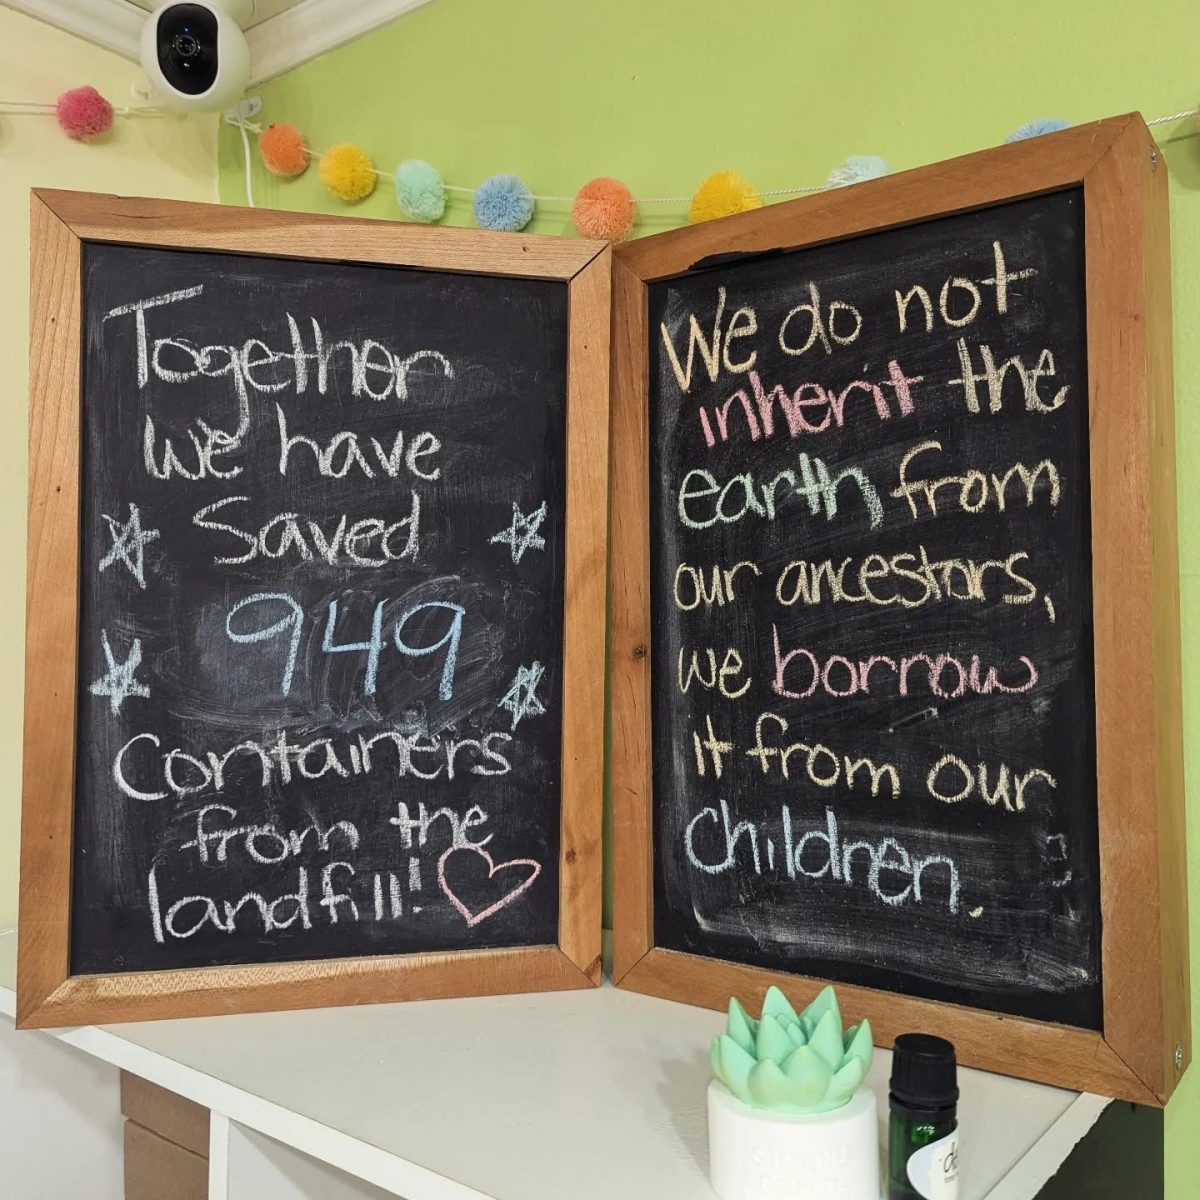 Together
we have
Saved
949
Containers
from the
landfill!
We do not
inherit the
earth from
our ancestors,
we borrow
it from our
children.
simply
earth